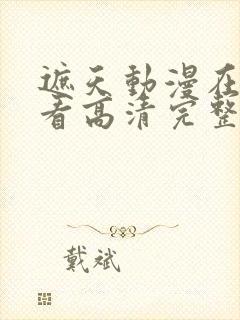 遮天動漫在
看高清完整
戴斌